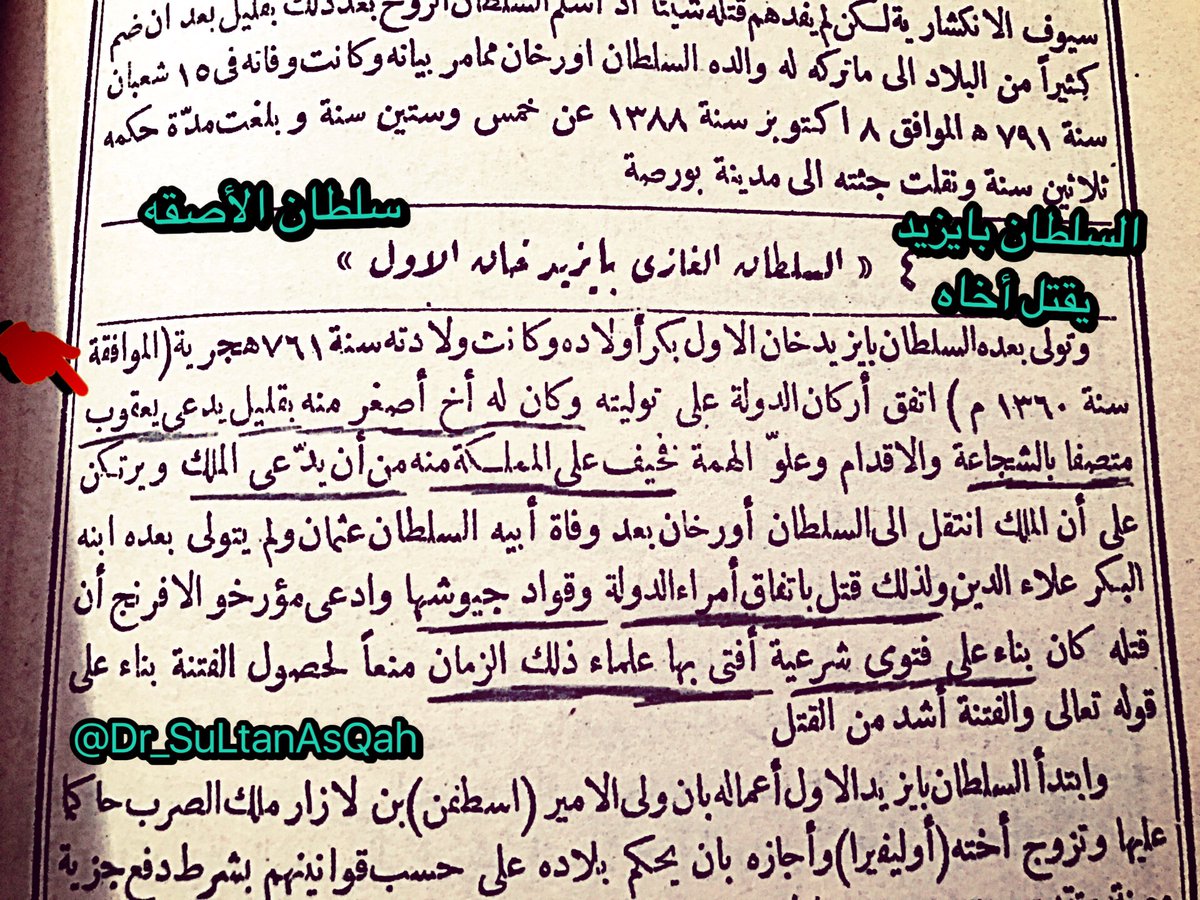 سيوف الانكشارية لكن لم يفدهم قتله شيئا اذ أسلم السلطان الروح بعد ذلك بقليل بعد ان ضم
كثيراً من البلاد الى ماتركه له والده السلطان اورخان ممامر بيانه وكانت وفاته فى ١٥ شعبان
سنة ٧٩١ ﻫ الموافق ٨ اكتوبر سنة ١٣٨٨ عن خمس وستين سنة وبلغت مدّة حكمه
ثلاثين سنة ونقلت جثته الى مدينة بورصة
سلطان الأصقه
السلطان بايزيد
يقتل أخاه
٤ « السلطان الغازى بايزيد خان الاول »
وتولى بعده السلطان بايزيد خان الاول بكر أولاده وكانت ولادته سنة ٧٦١ هجرية (الموافقة
سنة ١٣٦٠ م) اتفق أركان الدولة على توليته وكان له أخ أصغر منه بقليل يدعى يعقوب
متصفا بالشجاعة والاقدام وعلوّ الهمة فخيف على المملكة منه من أن يدّعى الملك ويرتكن
على أن الملك انتقل الى السلطان أورخان بعد وفاة أبيه السلطان عثمان ولم يتولى بعده ابنه
البكر علاء الدين ولذلك قتل باتفاق أمراء الدولة وقواد جيوشها وادعى مؤرخو الافرنج أن
قتله كان بناء على فتوى شرعية أفتى بها علماء ذلك الزمان منعاً لحصول الفتنة بناء على
قوله تعالى والفتنة أشد من القتل
@Dr_SuLtanAsQah
وابتدأ السلطان بايزيد الاول أعماله بان ولى الامير (اسطفن) بن لازار ملك الصرب حاكما
عليها وتزوج أخته (أوليفيرا) وأجازه بان يحكم بلاده على حسب قوانينهم بشرط دفع جزية